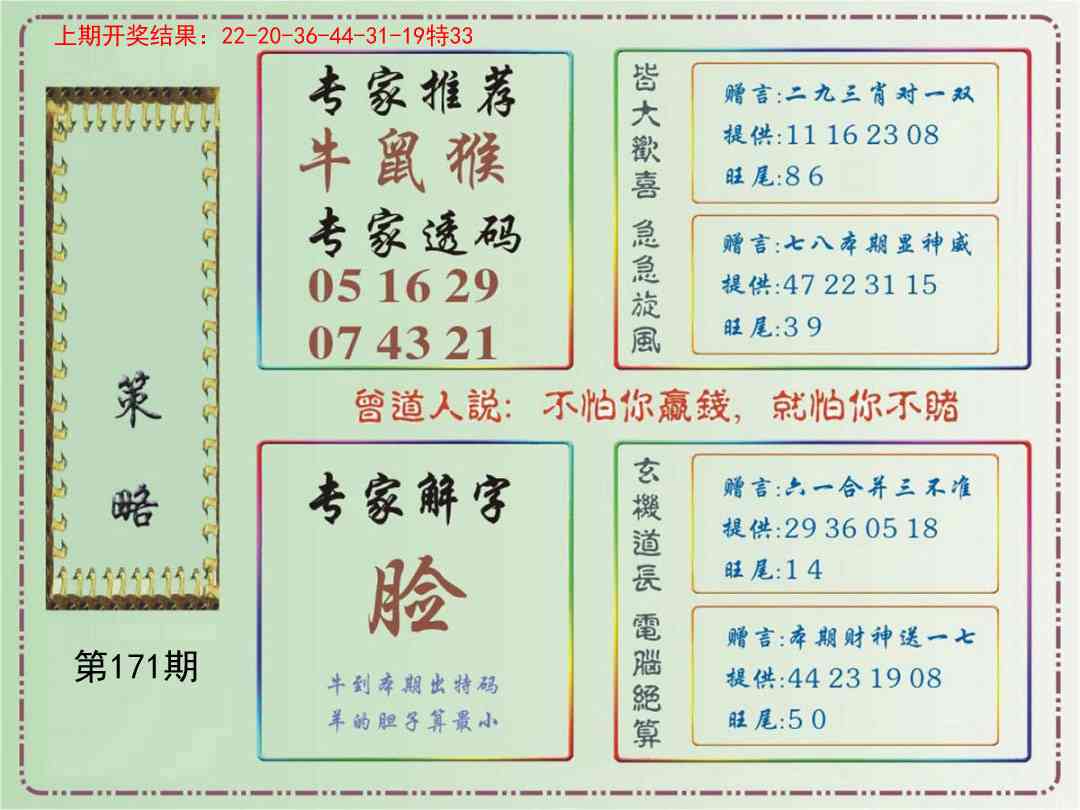 上期开奖结果：22-20-36-44-31-19特33
策
略
第171期
专家推荐
牛鼠猴
专家透码
05 16 29
07 43 21
皆大歡喜
赠言:二九三肖对一双
提供:11 16 23 08
旺尾:8 6
急急旋風
赠言:七八本期显神威
提供:47 22 31 15
旺尾:3 9
曾道人説：不怕你贏錢，就怕你不賭
专家解字
脸
牛到本期出特码
羊的胆子算最小
玄機道長
赠言:六一合并三不准
提供:29 36 05 18
旺尾:1 4
電腦絕算
赠言:本期财神送一七
提供:44 23 19 08
旺尾:5 0